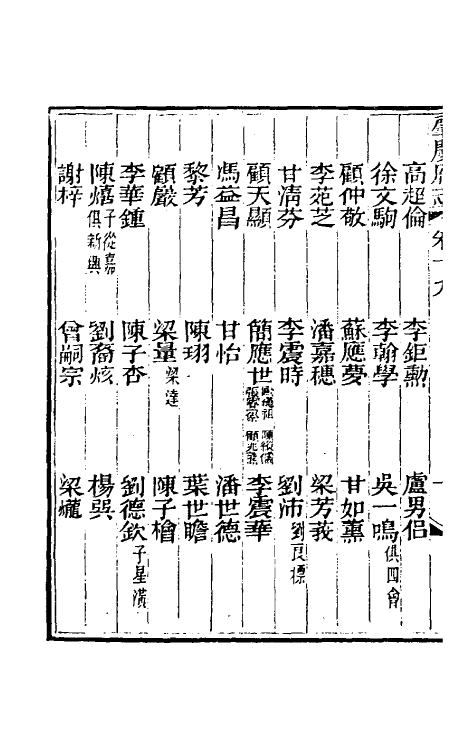 肇慶府志 卷十九
高超倫 李鉅勳 盧男侶
徐文駒 李翰學 吳一鳴俱四會
顧仲敬 蘇應夢 甘如薰
李苑芝 潘嘉穗 梁芳莪
甘清芬 李震時 劉沛劉良標
顧天顯 簡應世 李震華
馮益昌 甘怡 潘世德
黎芳 陳珝 葉世瞻
顧嚴 梁量梁達 陳子檜
李華鍾 陳子杏 劉德欽子星漢
陳熺子從嘉俱新興 劉裔炫 楊巽
謝梓 曾嗣宗 梁櫳